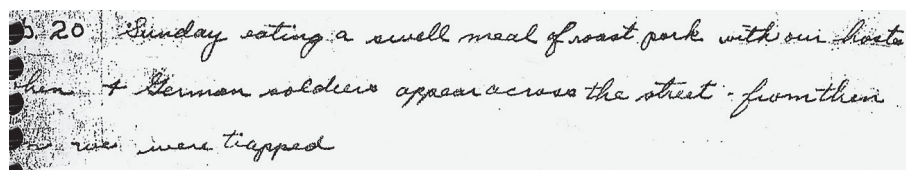 20 Sunday eating a swell meal of roast pork with our hosts
when 4 German soldiers appear across the street - from then
on we were trapped